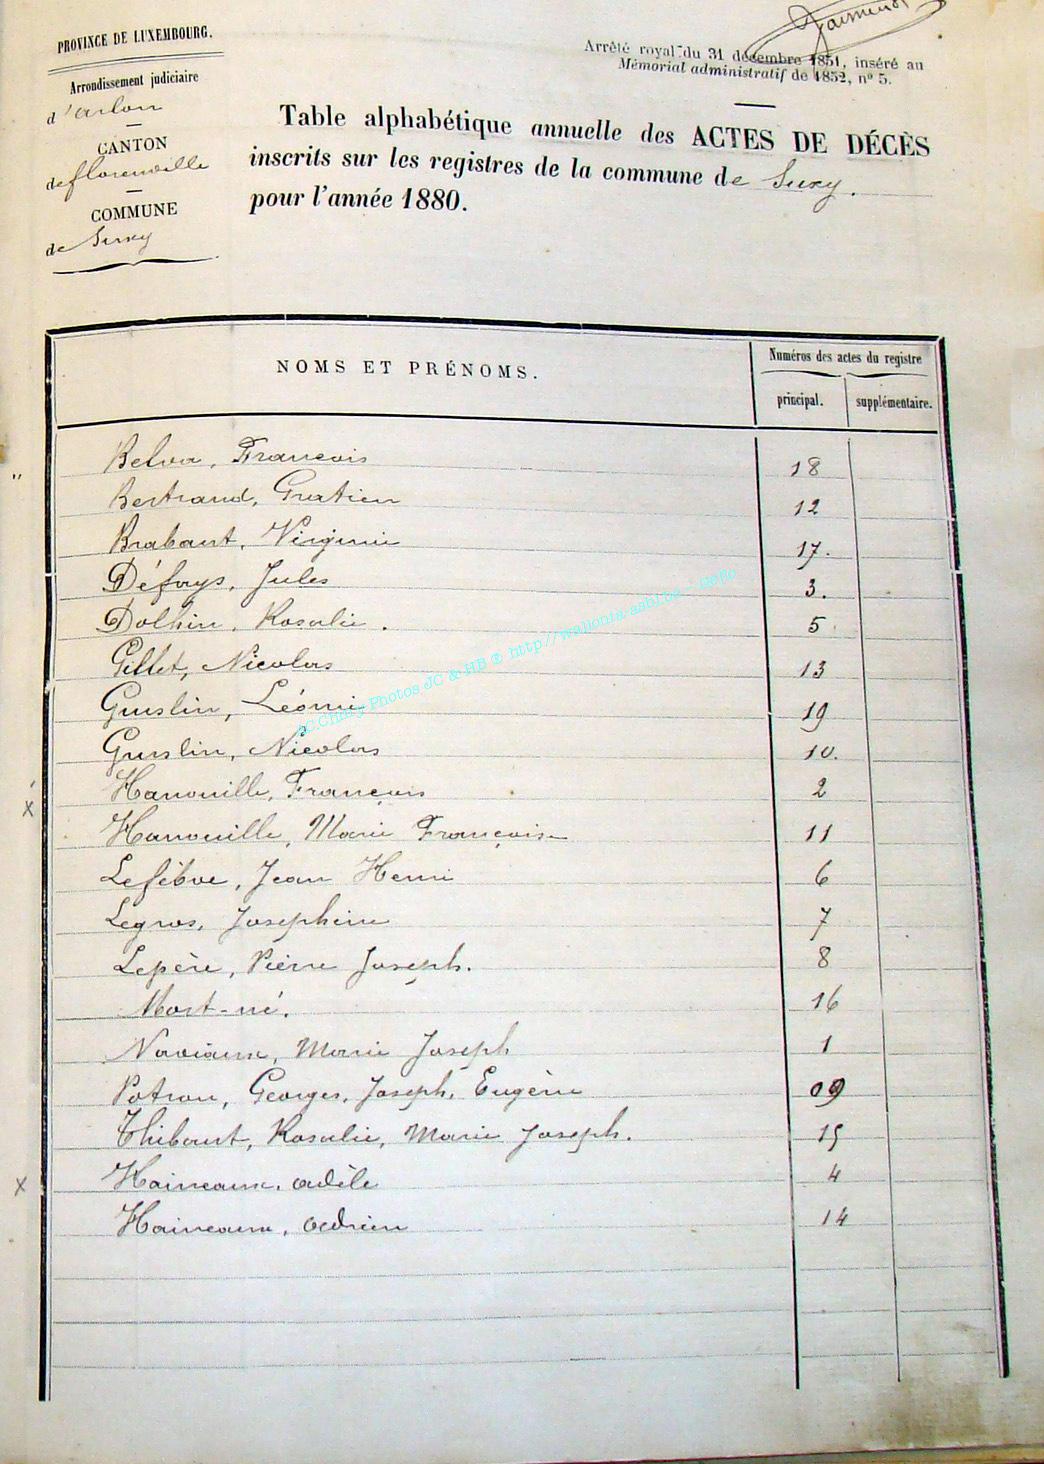 PROVINCE DE LUXEMBOURG.
Arrondissement judiciaire
d'arlon
CANTON
de florenville
COMMUNE
de Suxy
Arrêté royal du 31 décembre 1851, inséré au
Mémorial administratif de 1852, nº 5.
Table alphabétique annuelle des ACTES DE DÉCÈS
inscrits sur les registres de la commune de Suxy.
pour l'année 1880.
NOMS ET PRÉNOMS.
Numéros des actes du registre
principal. supplémentaire.
Belva, Francois 18
Bertrand, Gratien 12
Brabant, Virginie 17.
Défays, Jules 3.
Dolhin, Rosalie. 5
Gillet, Nicolas 13
Guslin, Léonie 19
Guslin, Nicolas 10.
Hanouille, François 2
Hanouille, Marie Française 11
Lefèbve, Jean Henri 6
Legros, Josephine 7
Lepère, Pièrre Joseph. 8
Mort-né. 16
Naviaux, Marie Joseph 1
Potron, Georges, Joseph, Eugène 09
Thibaut, Rosalie, Marie Joseph. 15
Haineaux, adèle 4
Haineaux, adrien 14
Photos JC & HB © http://wallonia-asbl.be